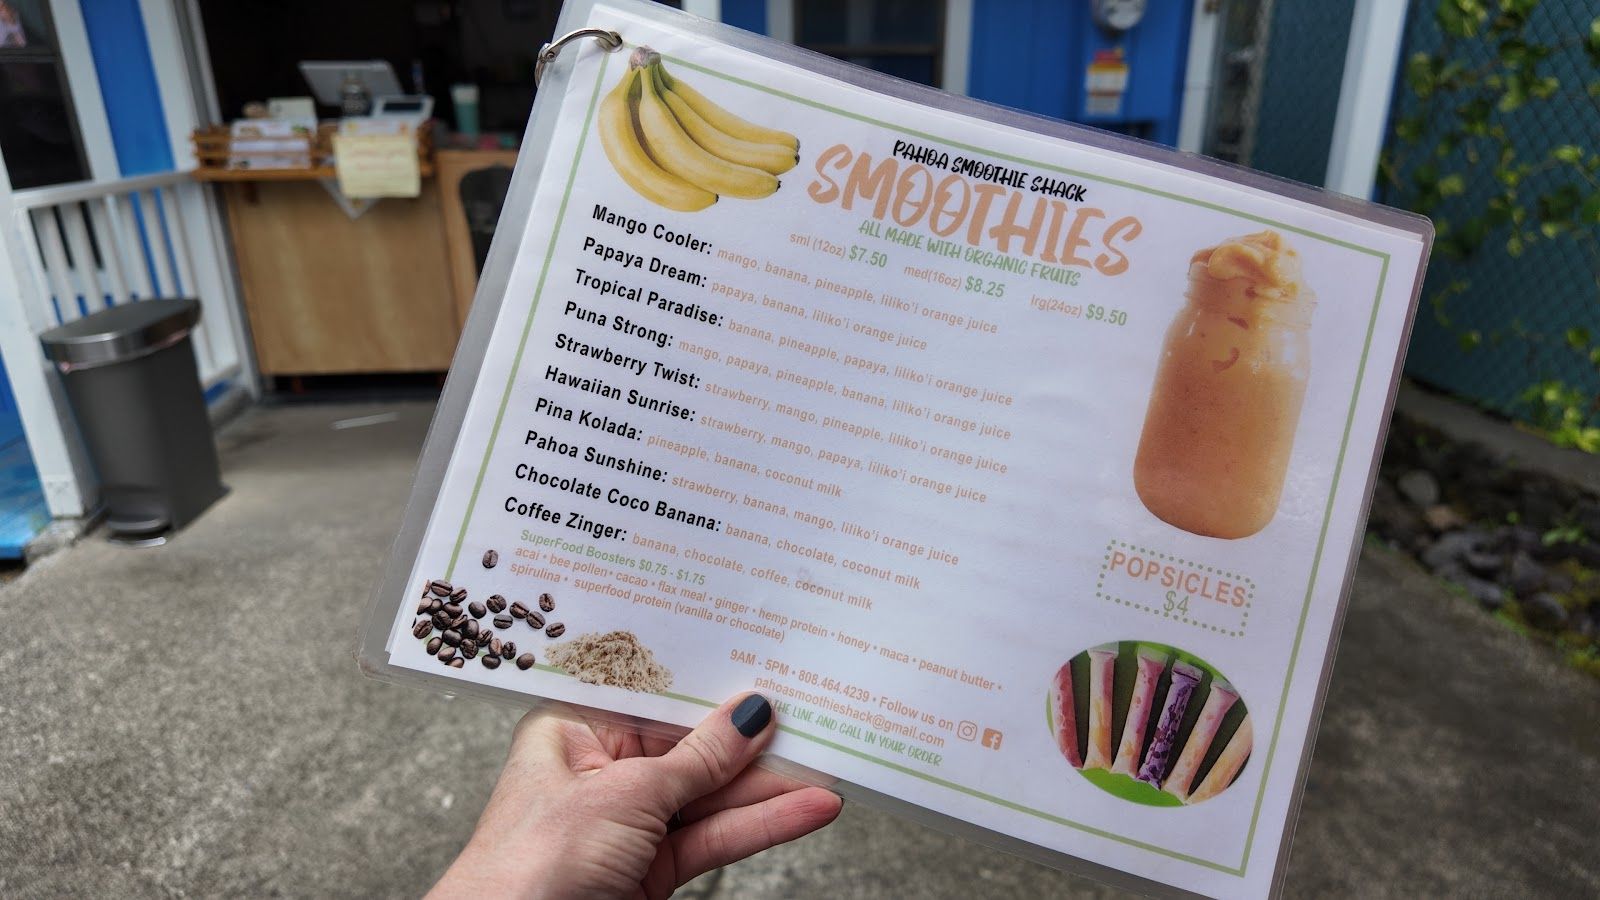 PAHOA SMOOTHIE SHACK
SMOOTHIES
ALL MADE WITH ORGANIC FRUITS
sml (12oz) $7.50 med(16oz) $8.25 lrg(24oz) $9.50
Mango Cooler: mango, banana, pineapple, liliko'i orange juice
Papaya Dream: papaya, banana, liliko'i orange juice
Tropical Paradise: banana, pineapple, papaya, liliko'i orange juice
Puna Strong: mango, papaya, pineapple, banana, liliko'i orange juice
Strawberry Twist: strawberry, mango, pineapple, liliko'i orange juice
Hawaiian Sunrise: strawberry, mango, papaya, liliko'i orange juice
Pina Kolada: pineapple, banana, coconut milk
Pahoa Sunshine: strawberry, banana, mango, liliko'i orange juice
Chocolate Coco Banana: banana, chocolate, coconut milk
Coffee Zinger: banana, chocolate, coffee, coconut milk
SuperFood Boosters $0.75 - $1.75
acai • bee pollen • cacao • flax meal • ginger • hemp protein • honey • maca • peanut butter •
spirulina • superfood protein (vanilla or chocolate)
9AM - 5PM • 808.464.4239 • Follow us on
pahoasmoothieshack@gmail.com
THE LINE AND CALL IN YOUR ORDER
POPSICLES
$4